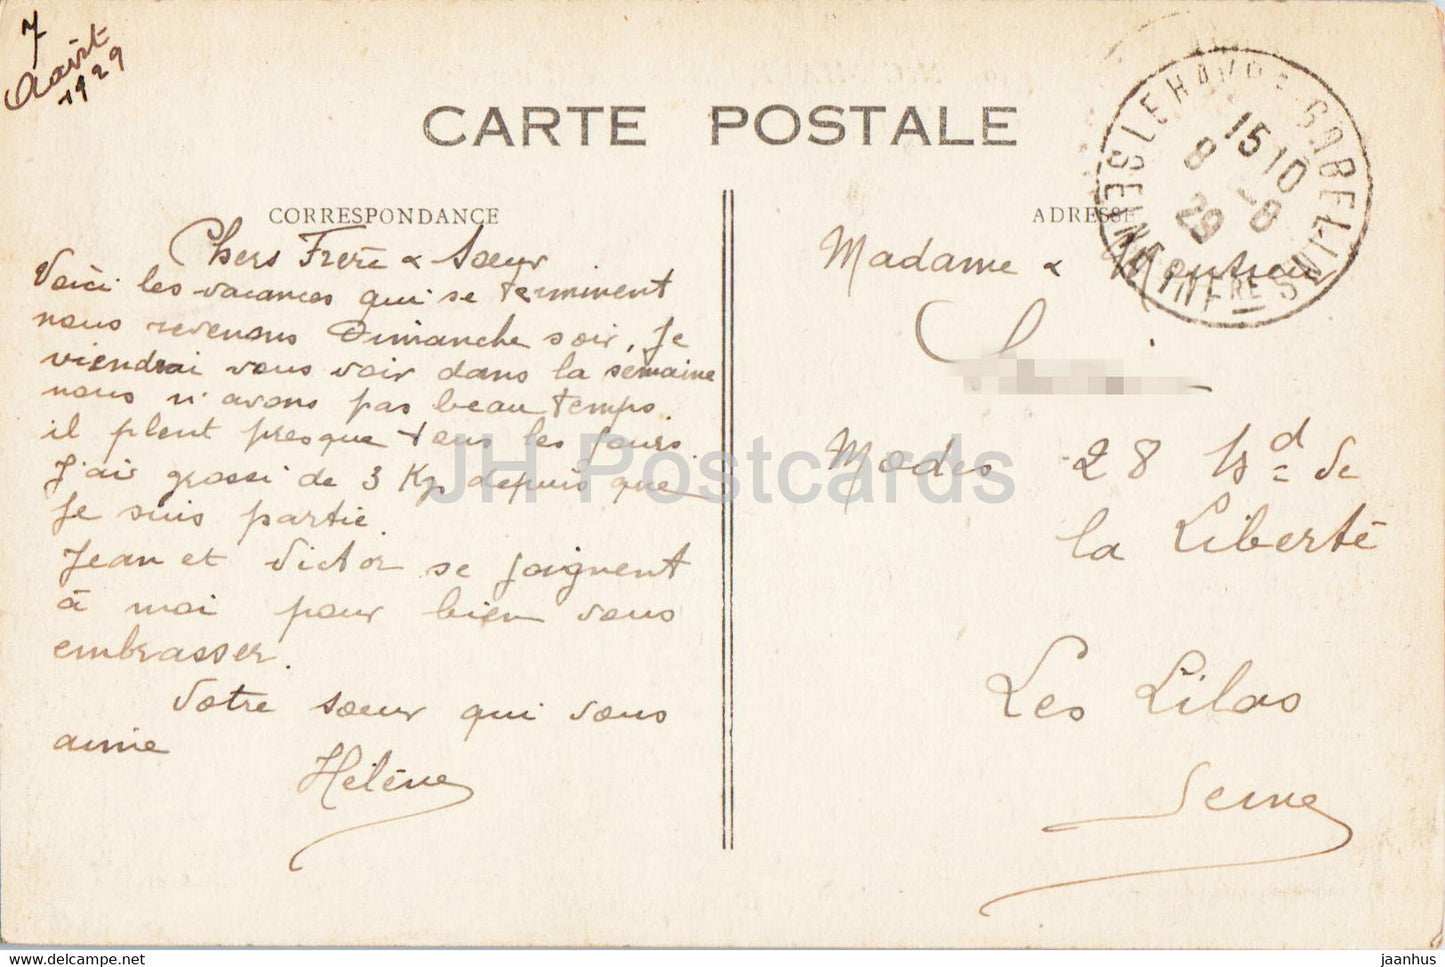 7
Août
1929
CARTE POSTALE
CORRESPONDANCE
Chers Frère & Sœur
Voici les vacances qui se terminent
nous revenons Dimanche soir, Je
viendrai vous voir dans la semaine
nous n'avons pas beau temps.
il pleut presque tous les jours.
J'ai grossi de 3 Kg depuis que
Je suis partie.
Jean et Victor se joignent
à moi pour bien vous
embrasser.
Votre sœur qui vous
aime
Hélène
ADRESSE
Madame & Monsieur
Modes 28 Bd de
la Liberté
Les Lilas
Seine
LE HAVRE GOBELINS
15 10
8 - 8
29
SEINE INFRE
JH Postcards
jaanhus